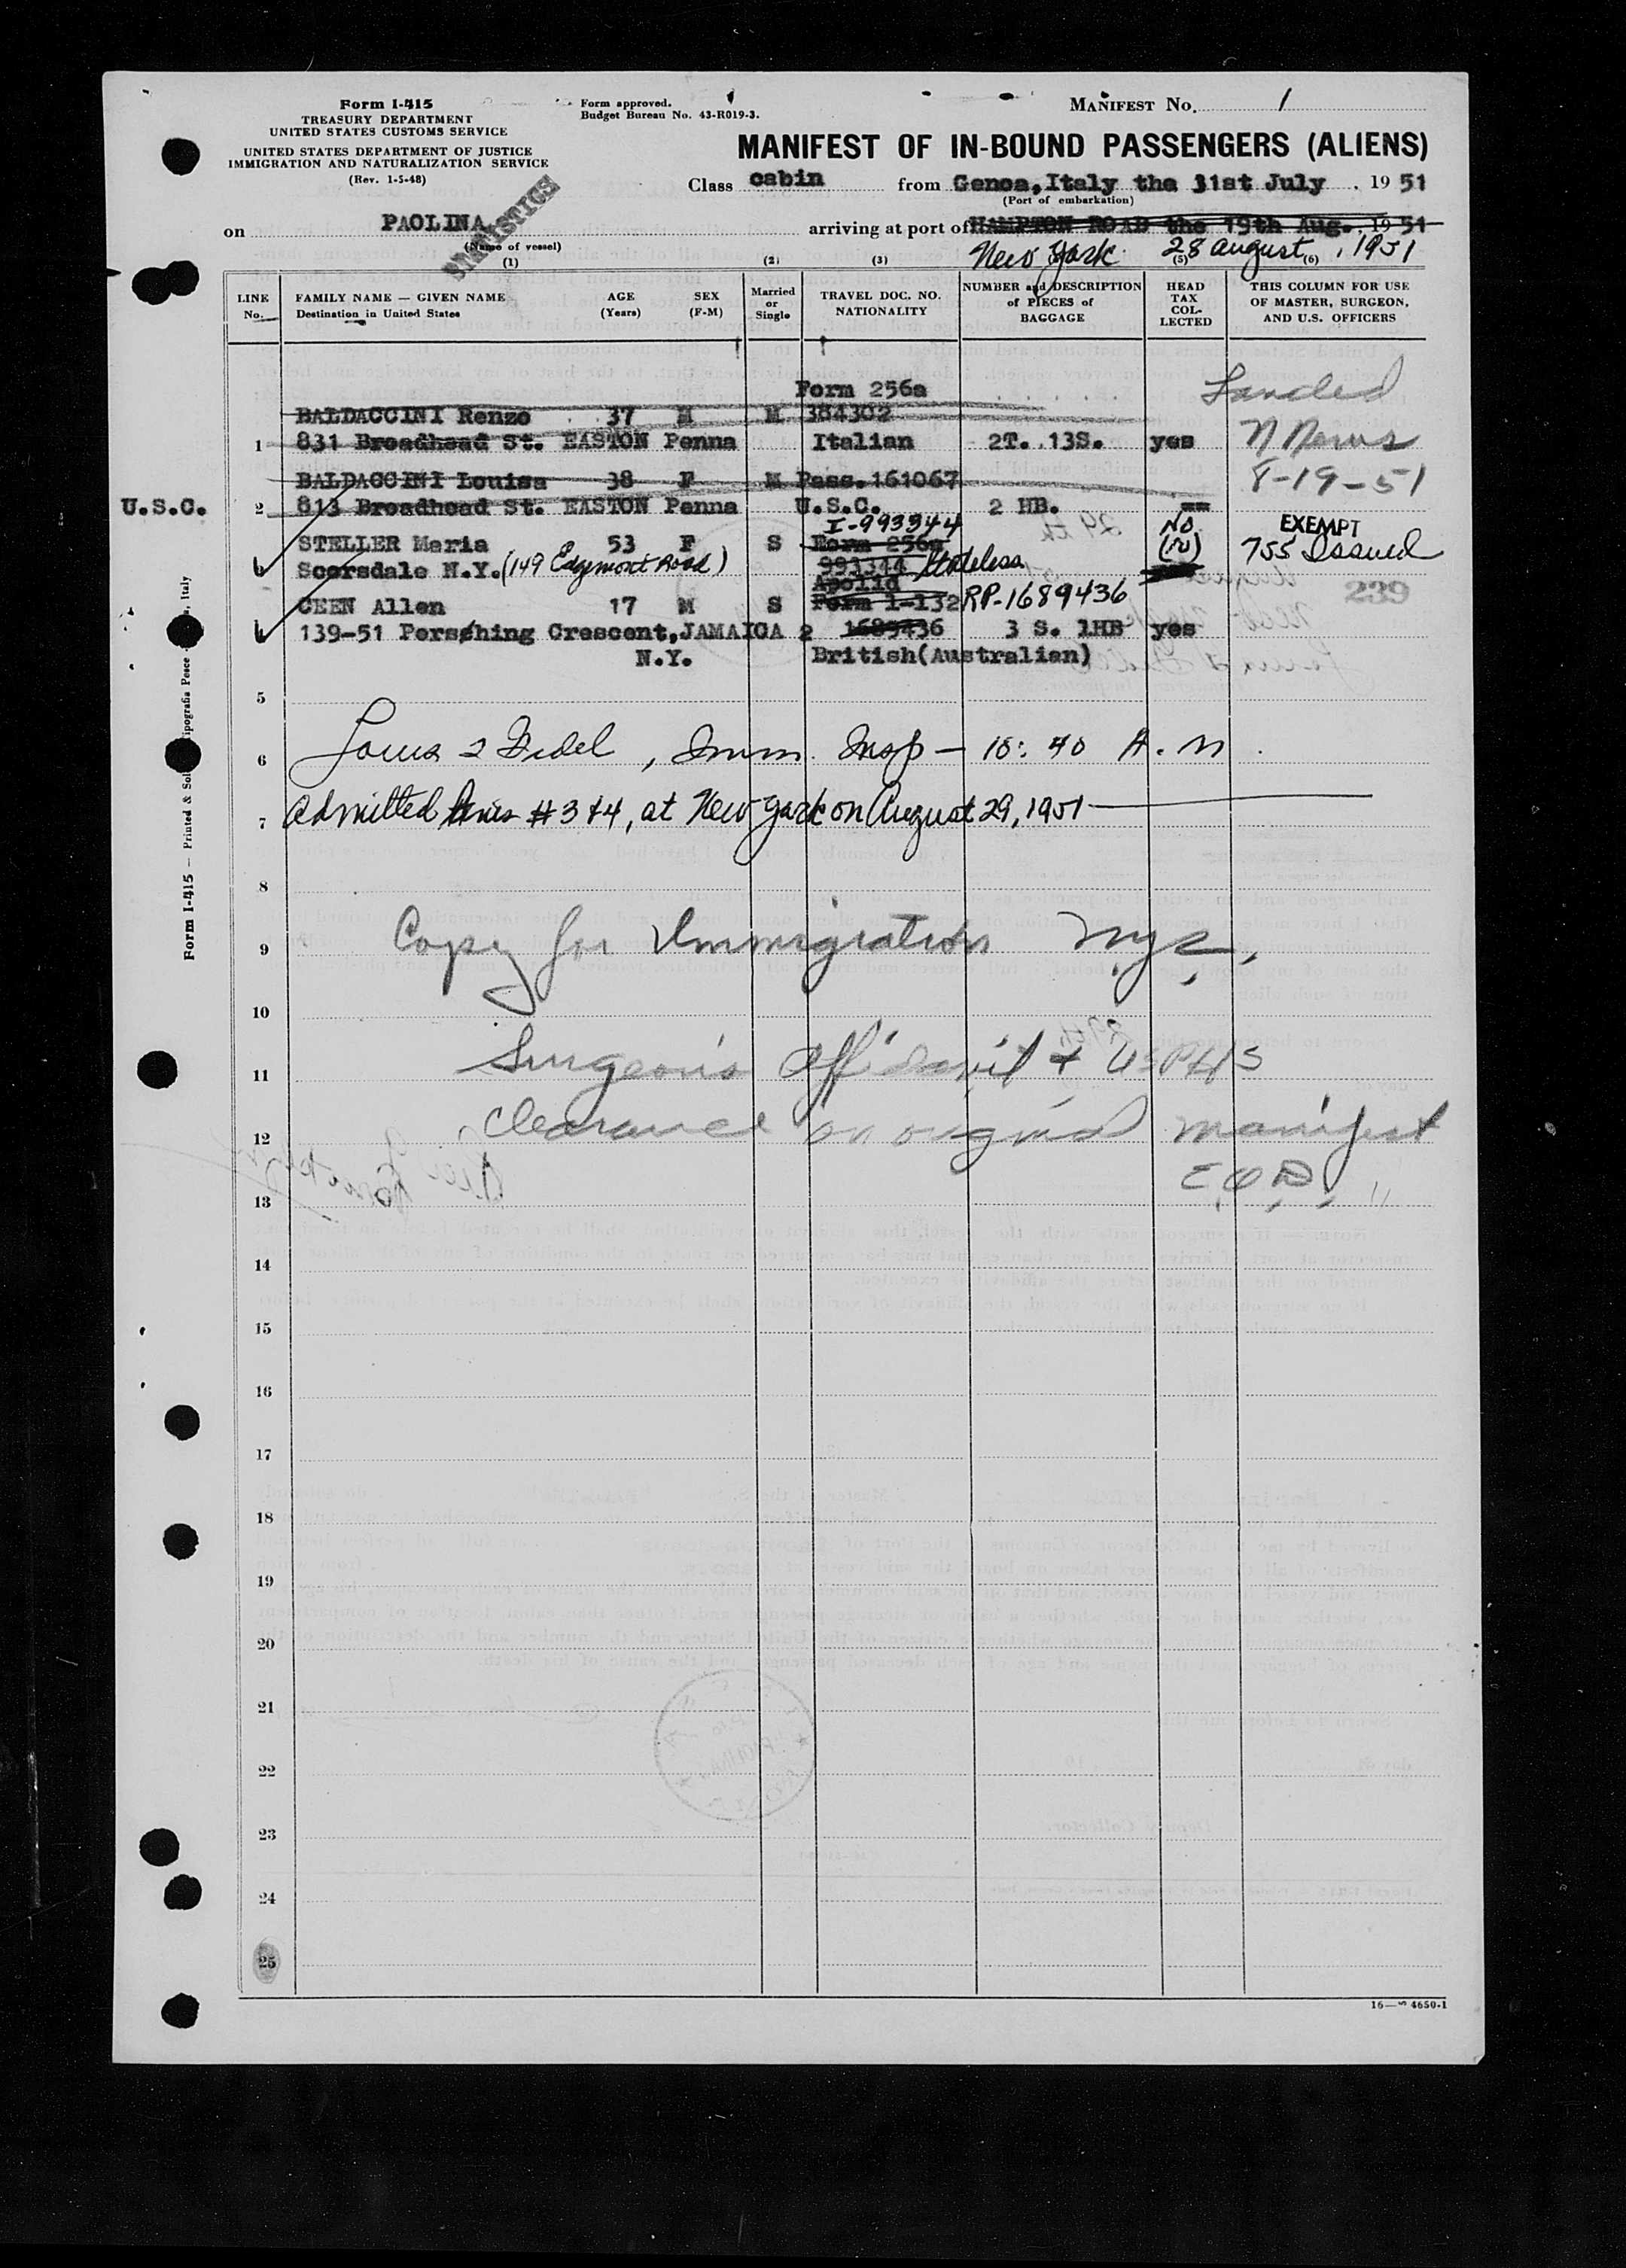 Form I-415
TREASURY DEPARTMENT
UNITED STATES CUSTOMS SERVICE
UNITED STATES DEPARTMENT OF JUSTICE
IMMIGRATION AND NATURALIZATION SERVICE
(Rev. 1-5-48)
Form approved.
Budget Bureau No. 43-R019-3.
MANIFEST No. 1
MANIFEST OF IN-BOUND PASSENGERS (ALIENS)
Class cabin from Genoa,Italy the 31st July , 19 51
(Port of embarkation)
STATISTICS
on PAOLINA arriving at port of HAMPTON ROAD the 19th Aug. 19 51
(Name of vessel)
New York 28 August, 1951
(1) (2) (3) (5) (6)
LINK No. FAMILY NAME — GIVEN NAME Destination in United States AGE (Years) SEX (F-M) Married or Single TRAVEL DOC. NO. NATIONALITY NUMBER and DESCRIPTION of PIECES of BAGGAGE HEAD TAX COLLECTED THIS COLUMN FOR USE OF MASTER, SURGEON, AND U.S. OFFICERS
Form 256a Landed
BALDACCINI Renzo 37 M M 384302
1 831 Broadhead St. EASTON Penna Italian 2T. 13S. yes N News
BALDACCINI Louisa 38 F M Pass.161067 8-19-51
U.S.C. 2 813 Broadhead St. EASTON Penna U.S.C. 2 HB. ==
I-993344 No EXEMPT
STELLER Maria 53 F S Form 256a (N) 755 Issued
Scarsdale N.Y. (149 Edgemont Road) 993344 Stateless
Apolid 239
CEEN Allen 17 M S Form I-132 RP-1689436
139-51 Pershing Crescent,JAMAICA 2 1689436 3 S. 1HB yes
N.Y. British(Australian)
5
6 Louis I Fidel, Imm. Insp — 10:40 A.M.
7 Admitted lines #3 & 4, at New York on August 29, 1951
8
9 Copy for Immigration NYC.
10
11 Surgeon's Affidavit & USPHS
12 clearance on original manifest
13 E.O.D.
14
15
16
17
18
19
20
21
22
23
24
25
16—4650-1
Form I-415 — Printed &
Tipografia Pesce
Italy